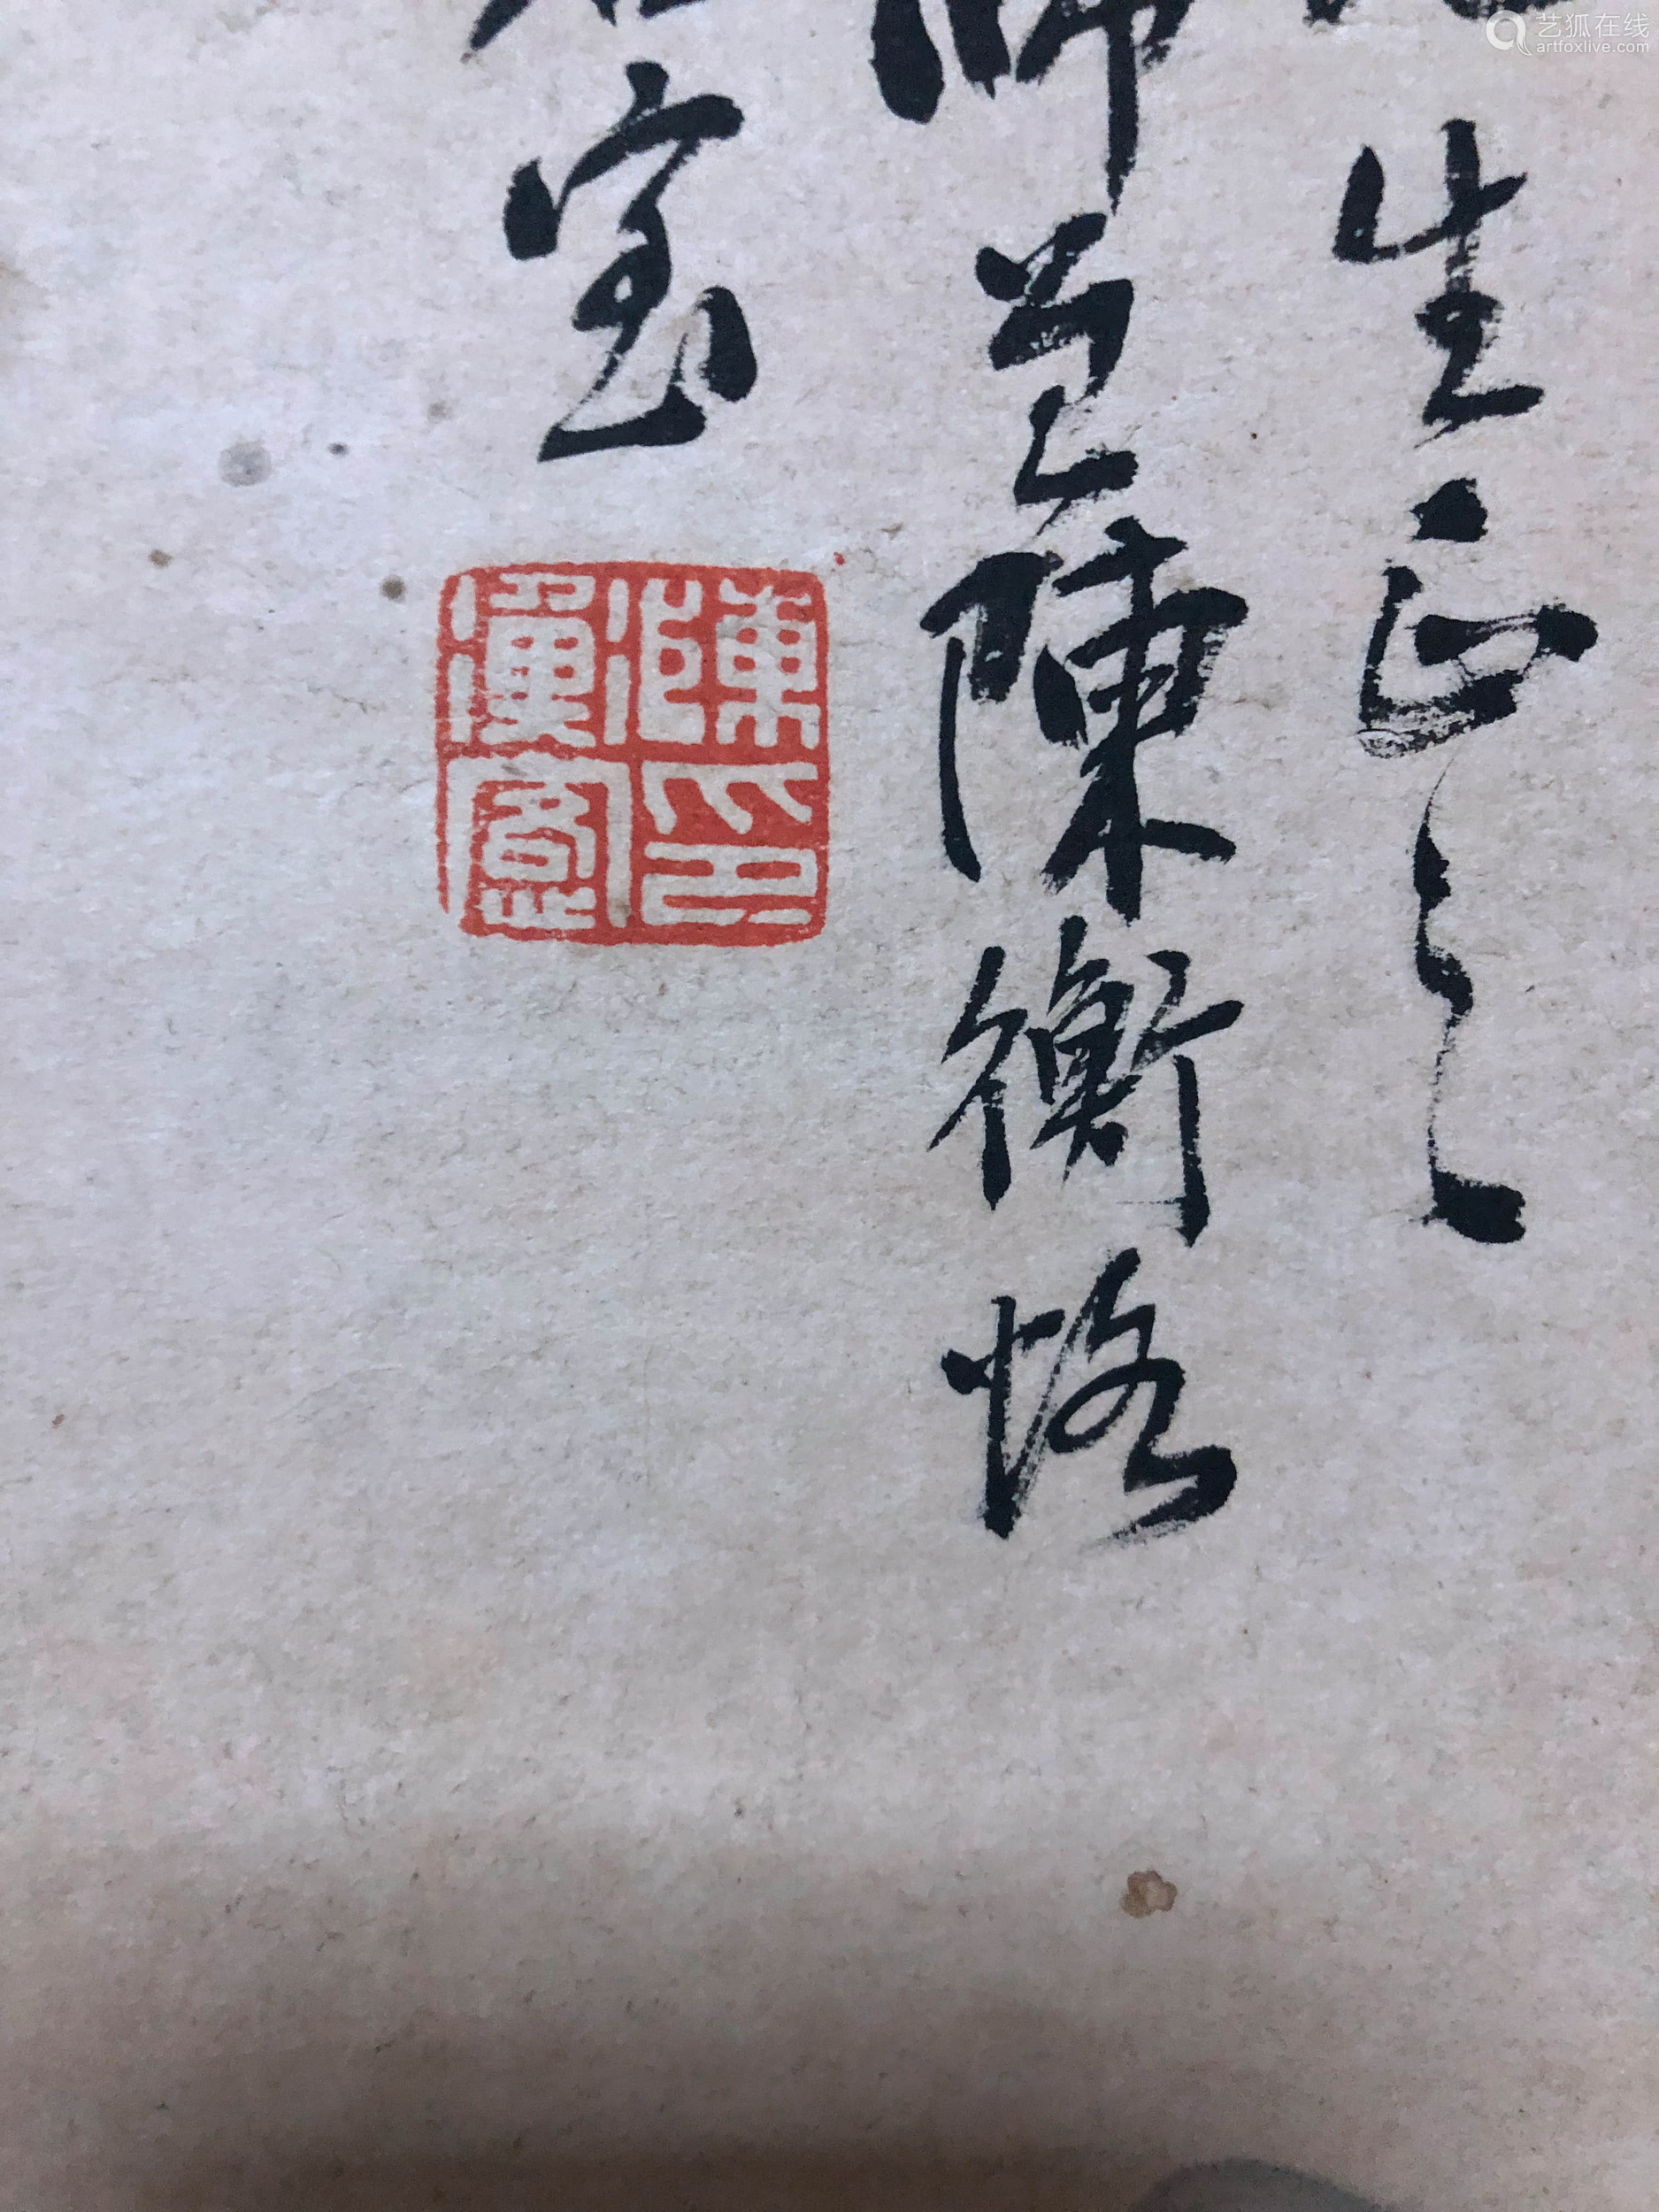 艺狐在线
artfoxlive.com
生正之
師曾陳衡恪
室
陳
印
衡
恪